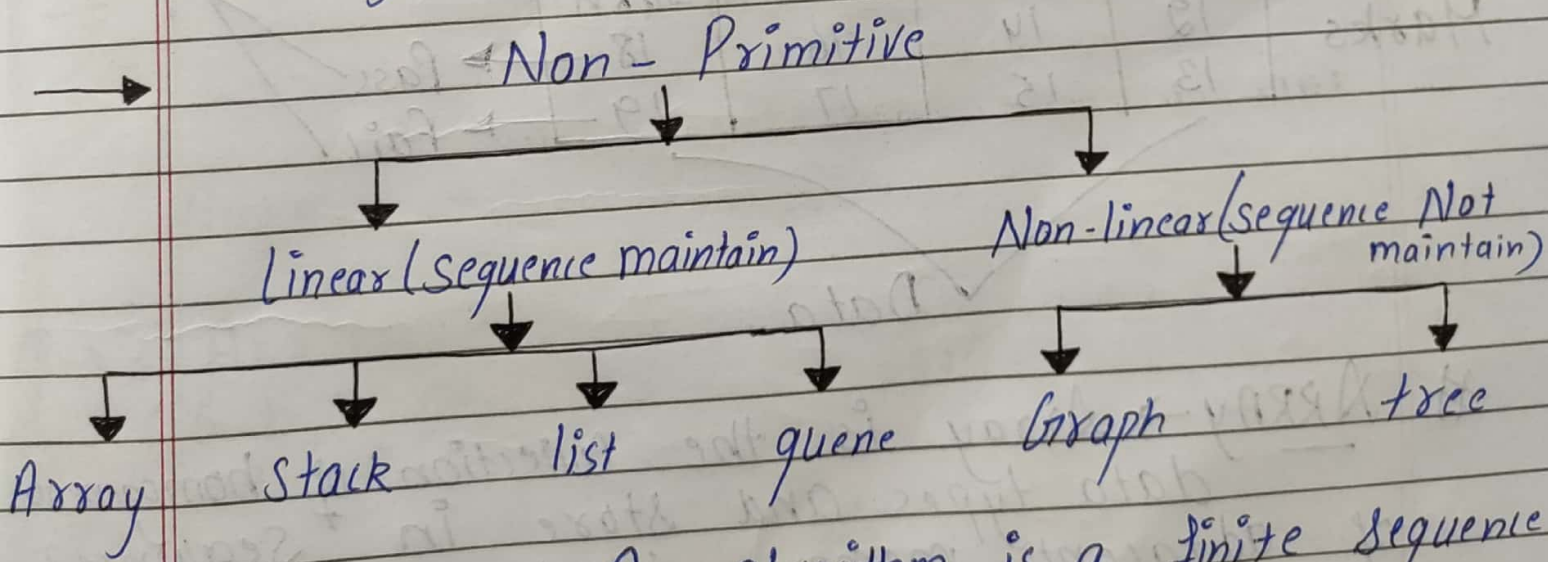 Non - Primitive
linear (sequence maintain)
Non-linear (sequence Not
maintain)
Array
Stack
list
quene
Graph
tree
is a finite sequence